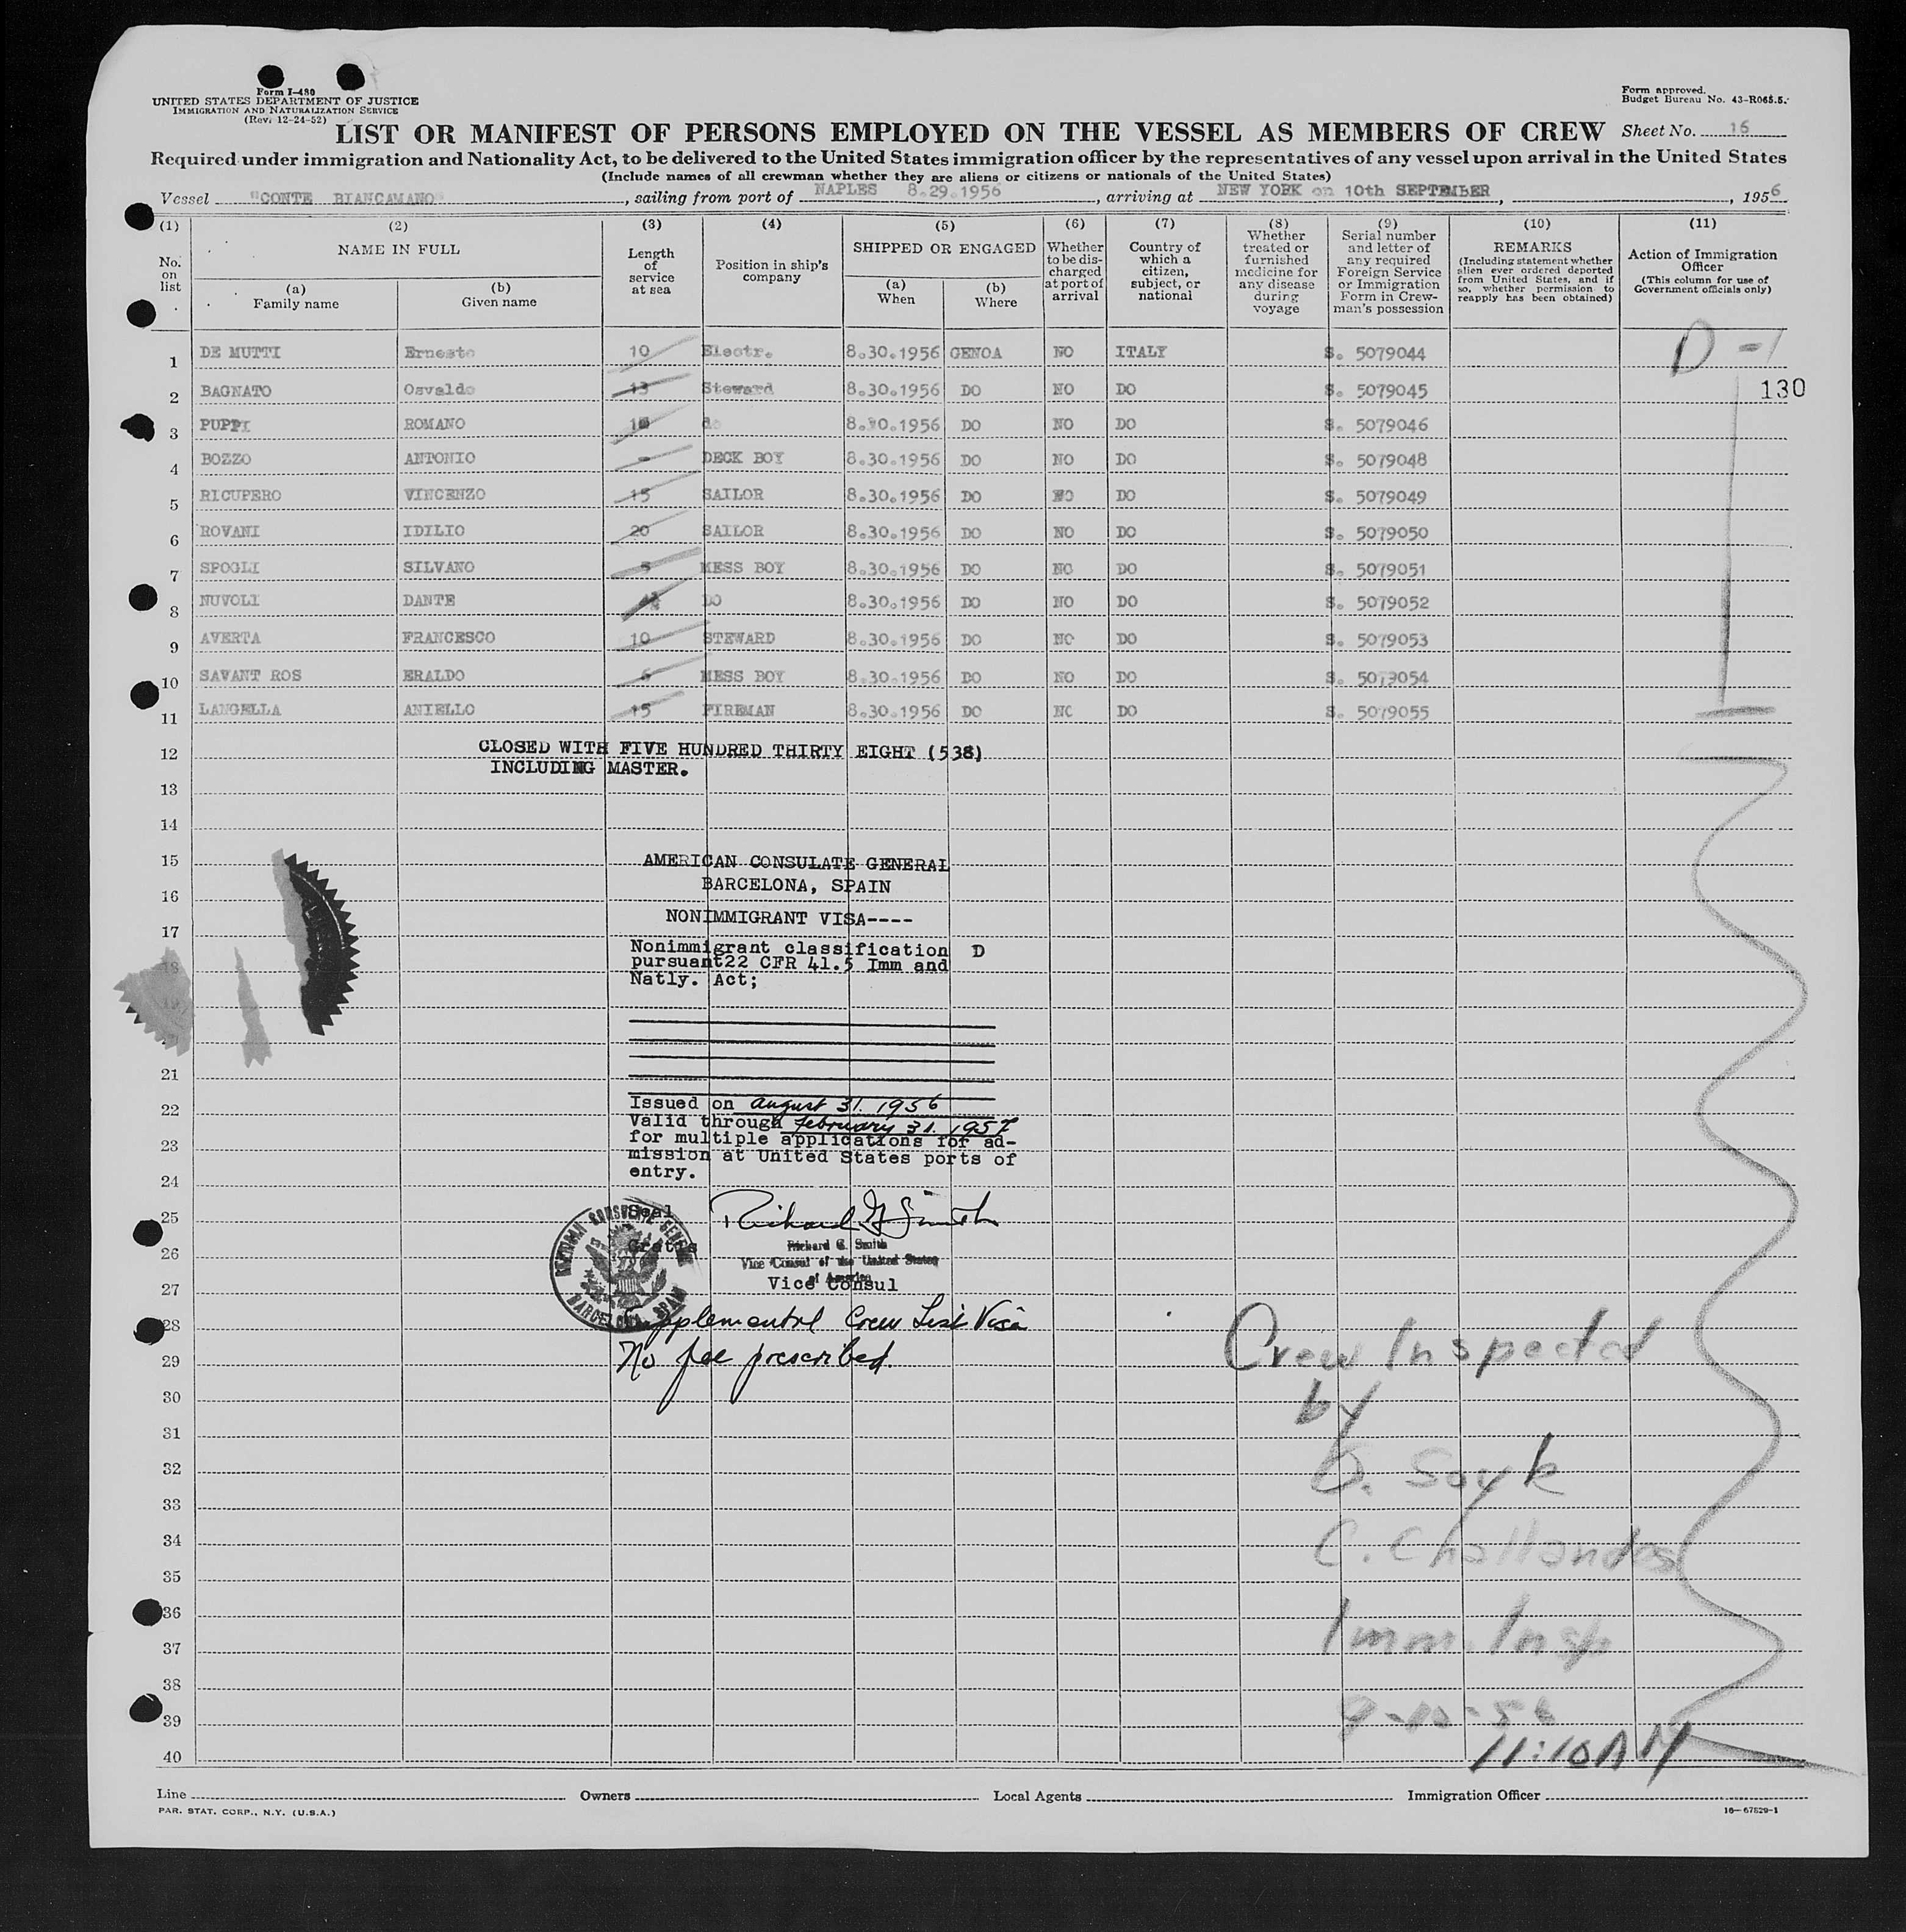 Form I-480
UNITED STATES DEPARTMENT OF JUSTICE
IMMIGRATION AND NATURALIZATION SERVICE
(Rev. 12-24-52)
Form approved.
Budget Bureau No. 43-R065.5.
LIST OR MANIFEST OF PERSONS EMPLOYED ON THE VESSEL AS MEMBERS OF CREW Sheet No. 16
Required under immigration and Nationality Act, to be delivered to the United States immigration officer by the representatives of any vessel upon arrival in the United States
(Include names of all crewman whether they are aliens or citizens or nationals of the United States)
Vessel "CONTE BIANCAMANO", sailing from port of NAPLES 8.29.1956, arriving at NEW YORK on 10th SEPTEMBER, , 1956
(1) No. on list
(2) NAME IN FULL
(a) Family name
(b) Given name
(3) Length of service at sea
(4) Position in ship's company
(5) SHIPPED OR ENGAGED
(a) When
(b) Where
(6) Whether to be discharged at port of arrival
(7) Country of which a citizen, subject, or national
(8) Whether treated or furnished medicine for any disease during voyage
(9) Serial number and letter of any required Foreign Service or Immigration Form in Crewman's possession
(10) REMARKS (Including statement whether alien ever ordered deported from United States, and if so, whether permission to reapply has been obtained)
(11) Action of Immigration Officer (This column for use of Government officials only)
1 DE MUTTI Ernesto 10 Electr. 8.30.1956 GENOA NO ITALY S. 5079044 D-1
2 BAGNATO Osvaldo 13 Steward 8.30.1956 DO NO DO S. 5079045 130
3 PUPPI ROMANO do 8.30.1956 DO NO DO S. 5079046
4 BOZZO ANTONIO - DECK BOY 8.30.1956 DO NO DO S. 5079048
5 RICUPERO VINCENZO 15 SAILOR 8.30.1956 DO NO DO S. 5079049
6 ROVANI IDILIO 20 SAILOR 8.30.1956 DO NO DO S. 5079050
7 SPOGLI SILVANO 5 MESS BOY 8.30.1956 DO NO DO S. 5079051
8 NUVOLI DANTE DO 8.30.1956 DO NO DO S. 5079052
9 AVERTA FRANCESCO 10 STEWARD 8.30.1956 DO NO DO S. 5079053
10 SAVANT ROS ERALDO 6 MESS BOY 8.30.1956 DO NO DO S. 5079054
11 LANGELLA ANIELLO 15 FIREMAN 8.30.1956 DO NO DO S. 5079055
12 CLOSED WITH FIVE HUNDRED THIRTY EIGHT (538)
INCLUDING MASTER.
13
14
15 AMERICAN CONSULATE GENERAL
BARCELONA, SPAIN
16
NONIMMIGRANT VISA----
17
Nonimmigrant classification D
pursuant22 CFR 41.5 Imm and
18
Natly. Act;
19
21
22 Issued on August 31. 1956
Valid through February 31. 1957
for multiple applications for ad-
23
mission at United States ports of
entry.
24
25 Seal Richard G Smith
Richard G. Smith
26 Gratis
Vice Consul of the United States
of America
27 Vice Consul
AMERICAN CONSULATE GENERAL
BARCELONA, SPAIN
28 Supplemental Crew List Visa
29 No fee prescribed
Crew Inspected
30 by
31
32 Soyk
33
34 C. Challandes
35
36
37 Imm. Insp
38
39 9-10-56
40 11:10 AM
Line Owners Local Agents Immigration Officer
PAR. STAT. CORP., N.Y. (U.S.A.)
16—67829-1